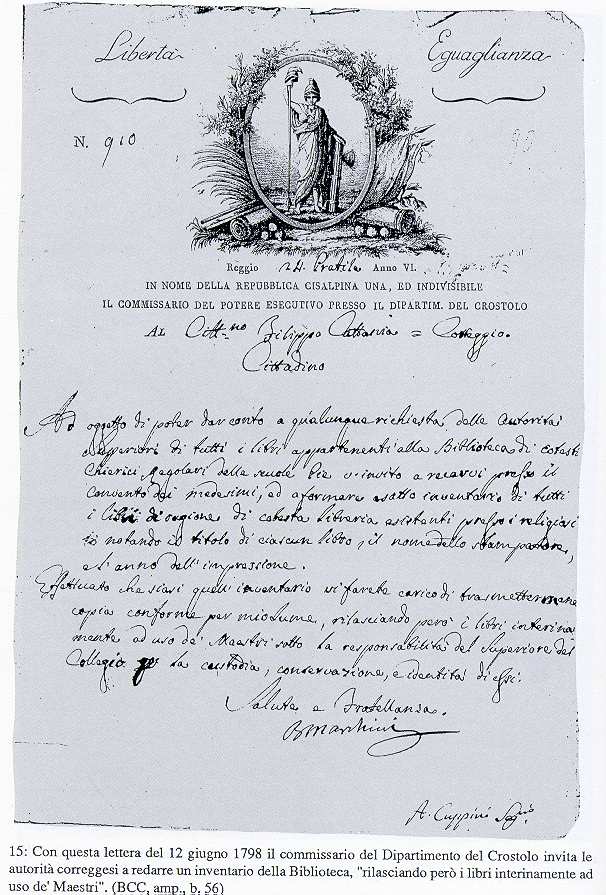 Libertà
Eguaglianza
N. 910
Reggio 24. Pratile Anno VI.
IN NOME DELLA REPUBBLICA CISALPINA UNA, ED INDIVISIBILE
IL COMMISSARIO DEL POTERE ESECUTIVO PRESSO IL DIPARTIM. DEL CROSTOLO
AL Citt:no Filippo = Correggio.
Cittadino
Ad oggetto di poter dar conto a qualunque richiesta delle Autorità
Superiori di tutti i libri appartenenti alla Biblioteca di cotesti
Chierici Regolari delle scuole Pie v'invito a recarvi presso il
Convento dei medesimi, ed a formare esatto inventario di tutti
i libri di ragione di cotesta libreria esistenti presso i religiosi
notando il titolo di ciascun libro, il nome dello stampatore,
e l'anno dell'impressione.
Effettuato che siasi quell'inventario vi farete carico di trasmettermene
copia conforme per mio lume, rilasciando però i libri interina
mente ad uso de' Maestri sotto la responsabilità del Superiore del
Collegio per la custodia, conservazione, e identità di essi.
Salute e Fratellanza.
A. Cuppini Seg.rio
15: Con questa lettera del 12 giugno 1798 il commissario del Dipartimento del Crostolo invita le
autorità correggesi a redarre un inventario della Biblioteca, "rilasciando però i libri interinamente ad
uso de' Maestri". (BCC, amp., b. 56)